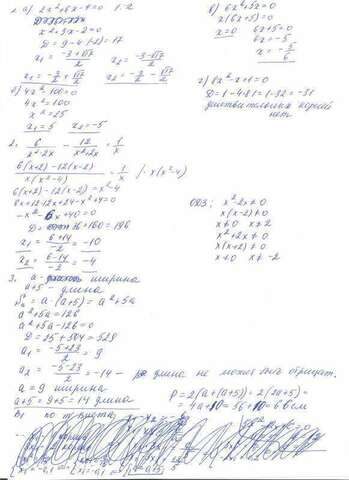 1. а) 2x²+6x-4=0 |:2
x²+3x-2=0
D=9-4(-2)=17
x₁=(-3+√17)/2 x₂=(-3-√17)/2
x₁=-3/2+√17/2 x₂=-3/2-√17/2
б) 4x²-100=0
4x²=100
x²=25
x₁=5 x₂=-5
в) 6x²+5x=0
x(6x+5)=0
x=0 6x+5=0
6x=-5
x=-5/6
г) 8x²-x+1=0
D=1-4·8·1=1-32=-31
действительных корней
нет
2. 6/(x²-2x) - 12/(x²+2x) = 1/x
(6(x+2)-12(x-2))/(x(x²-4)) = 1/x |·x(x²-4)
6(x+2)-12(x-2)=x²-4
6x+12-12x+24-x²+4=0
-x²-6x+40=0
D=36+160=196
x₁=(6+14)/-2=-10
x₂=(6-14)/-2=-4
ОДЗ: x²-2x≠0
x(x-2)≠0
x≠0 x≠2
x²+2x≠0
x(x+2)≠0
x≠0 x≠-2
3. a- ширина
a+5 - длина
S=a·(a+5)=a²+5a
a²+5a=126
a²+5a-126=0
D=25+504=529
a₁=(-5+23)/2=9
a₂=(-5-23)/2=-14- длина не может быть отрицат.
a=9 ширина
a+5=9+5=14 длина
P=2(a+(a+5))=2(2a+5)=
4a+10=56+10=66см
по т. Виета